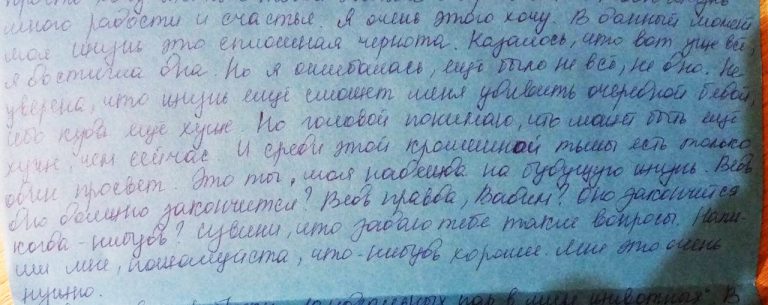 много радости и счастья. Я очень этого хочу. В данный момент
моя жизнь это сплошная чернота. Казалось, что вот уже всё,
я достигла дна. Но я ошибалась, ещё было не всё, не дно. Не
уверена, что жизнь ещё сможет меня удивить очередной бедой,
ибо куда ещё хуже. Но головой понимаю, что может быть ещё
хуже чем сейчас. И среди этой крошешной тьмы есть только
один просвет. Это ты, моя надежда на будущую жизнь. Ведь
дно должно закончится? Ведь правда, Вадим? Оно закончится
когда-нибудь? Извини, что задаю тебе такие вопросы. Напи-
ши мне, пожалуйста, что-нибудь хорошее. Мне это очень
нужно.